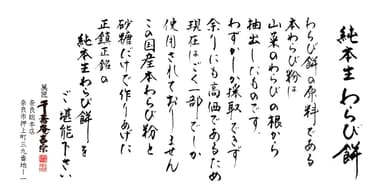 純本生わらび餅
わらび餅の原料である
本わらび粉は
山菜のわらびの根から
抽出したものです。
わずかしか採取できず
余りにも高価であるため
現在はごく一部でしか
使用されておりません
この国産本わらび粉と
砂糖だけで作りあげた
正銘正銘の
純本生わらび餅を
ご堪能下さい
菓匠 千壽庵吉宗
奈良総本店
奈良市押上町三九番地ー一